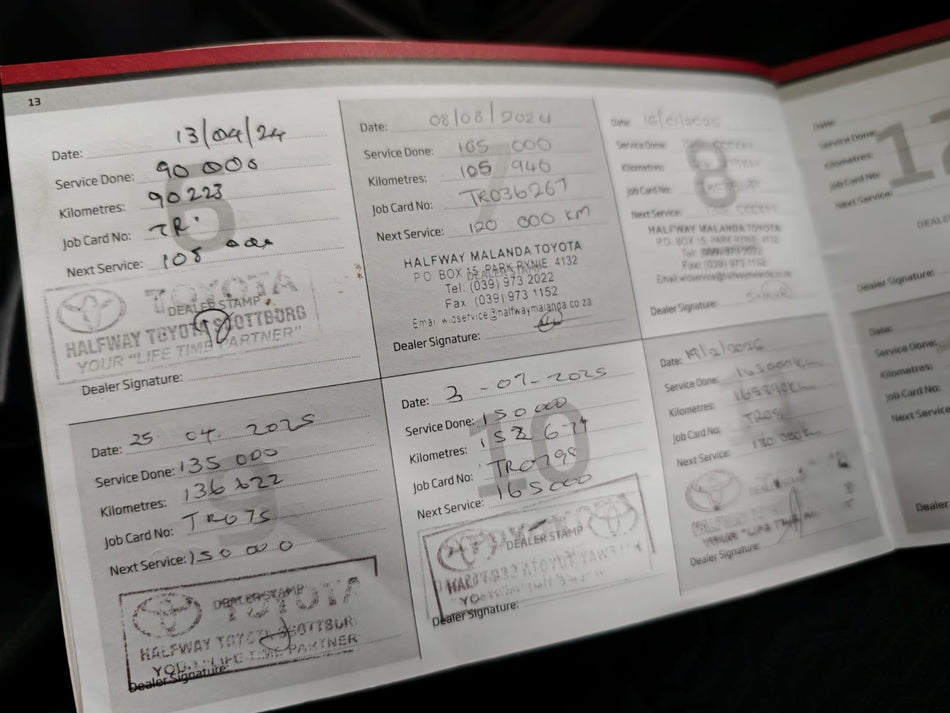 13
Date: 13/04/24
Service Done: 90 000
Kilometres: 90223
Job Card No: TR
Next Service: 105 000
TOYOTA
DEALER STAMP
HALFWAY TOYOTA SCOTTBURG
YOUR "LIFE TIME PARTNER"
Dealer Signature:
Date: 08/08/2024
Service Done: 105 000
Kilometres: 105 940
Job Card No: TR036267
Next Service: 120 000 KM
HALFWAY MALANDA TOYOTA
P.O. BOX 15, PARK RYNIE, 4132
Tel: (039) 973 2022
Fax (039) 973 1152
Dealer Signature:
8
Date:
Service Done:
Kilometres:
Job Card No:
Next Service:
HALFWAY MALANDA TOYOTA
P.O. BOX 15, PARK RYNIE, 4132
Tel: (039) 973 2022
Fax: (039) 973 1152
Dealer Signature:
Date:
Service Done:
Kilometres:
Job Card No:
Next Service:
Dealer Signature:
Date: 25 04. 2025
Service Done: 135 000
Kilometres: 136 622
Job Card No: TR075
Next Service: 150 000
DEALER STAMP
TOYOTA
HALFWAY TOYOTA SCOTTBUR
YOUR LIFE TIME PARTNER
Dealer Signature:
10
Date: 3 -07-2025
Service Done: 150 000
Kilometres:
Job Card No: TR0798
Next Service: 165000
TOYOTA
DEALER STAMP
Dealer Signature:
Date: 19/2/2026
Service Done: 165 000km
Kilometres: 165390km
Job Card No:
Next Service: 180 000km
Dealer Signature:
Date:
Service Done:
Kilometres:
Job Card No:
Next Service:
Dealer